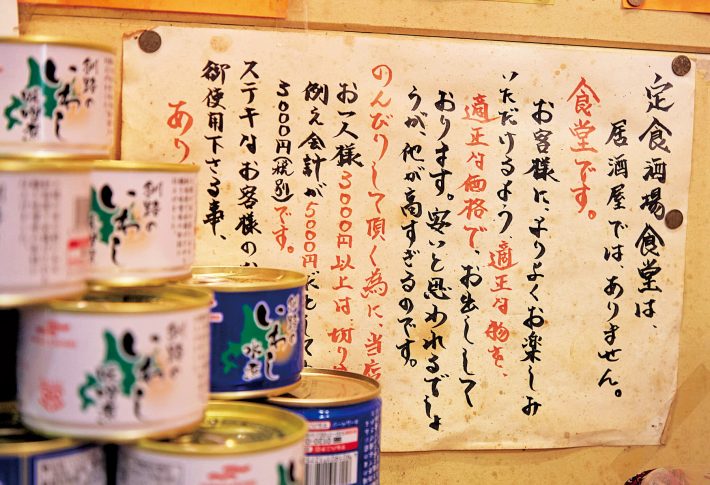 定食酒場食堂は、
居酒屋では、ありません。
食堂です。
お客様に、よりよくお楽しみ
いただけるよう、適正な物を、
適正な価格で、お出しして
おります。安いと思われるでしょ
うが、他が高すぎるのです。
のんびりして頂く為に、当店
お一人様3000円以上は、切り
例え会計が5000円だとして
3000円(税別)です。
ステキなお客様の
御使用下さる事、
あり
釧路の
いわし
味噌煮
釧路の
いわし
釧路の
いわし
味噌煮
釧路の
いわし
水煮
釧路の